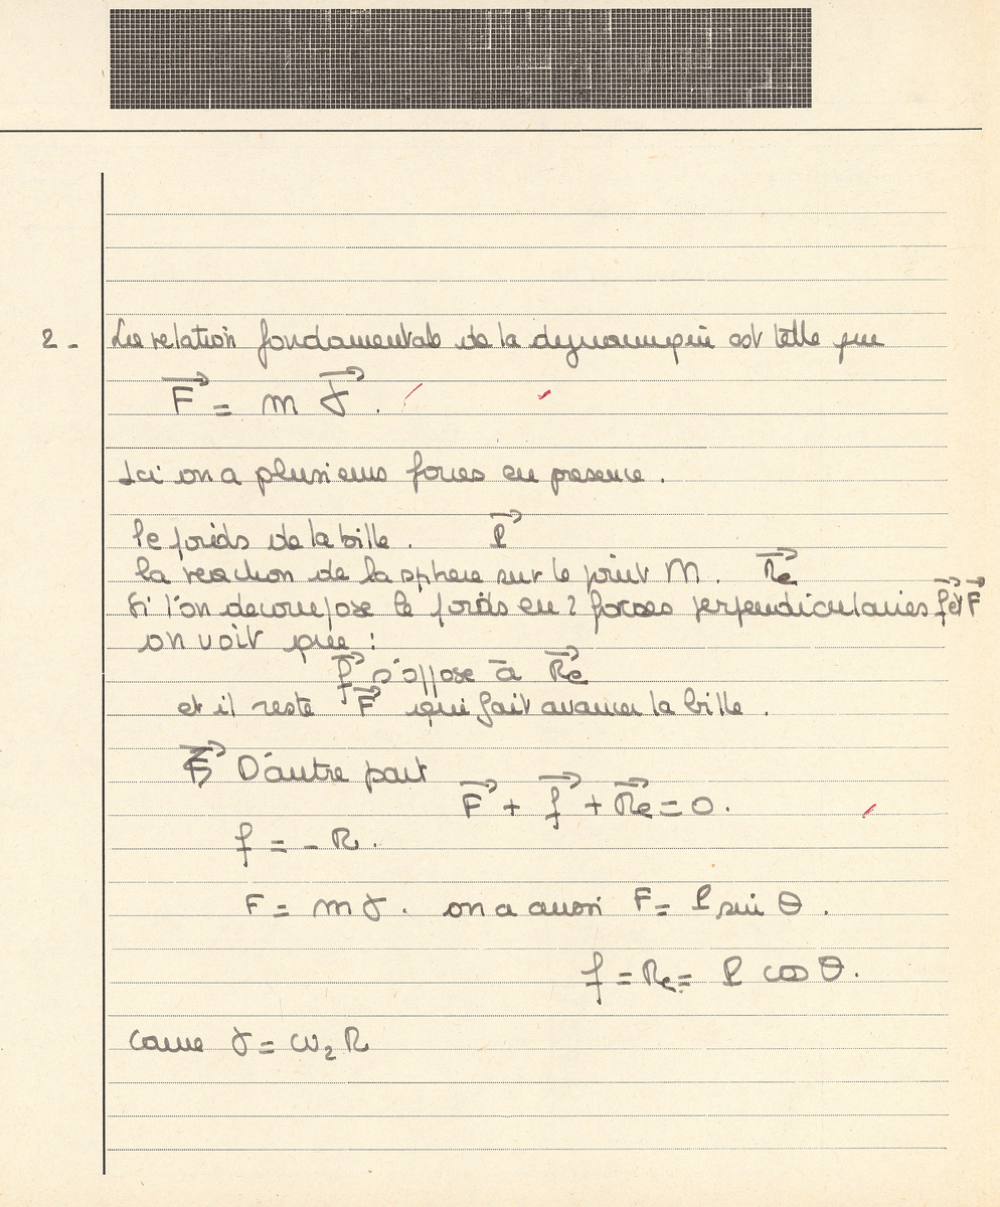 2 - La relation fondamentale de la dynamique est telle que
F⃗ = m γ⃗ .
Ici on a plusieurs forces en presence .
le poids de la bille . P⃗
la reaction de la sphere sur le point M . Re⃗
Si l'on decompose le poids en 2 forces perpendiculaires f⃗ et F⃗
on voit que :
f⃗ s'oppose à Re⃗
et il reste F⃗ qui fait avancer la bille .
D'autre part
F⃗ + f⃗ + Re⃗ = 0 .
f = - R .
F = m γ . on a aussi F = P sin θ .
f = Re = P cos θ .
comme γ = ω₂ R